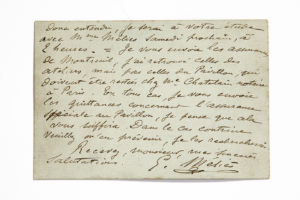 Bien entendu je serai à votre étude
avec Mme Méliès samedi prochain, à
2 heures. = Je vous envoie les assurances
de Montreuil, j'ai retrouvé celles des
ateliers, mais pas celles du Pavillon, qui
doivent être restées chez Me Chatelain notaire
à Paris. En tous cas, je vous envoie
les quittances concernant l'assurance
spéciale au Pavillon, je pense que cela
vous suffira. Dans le cas contraire
veuillez m'en prévenir, je les rechercherai.
Recevez, monsieur, mes sincères
salutations. G. Méliès